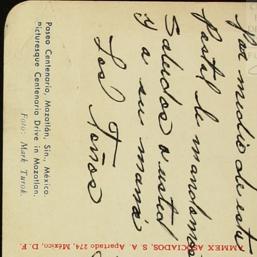 Por medio de esta
Postal le mandamos
Saludos a usted
y a su mamá
Los Toños
Paseo Centenario, Mazatlán, Sin., México.
Picturesque Centenario Drive in Mazatlan.
Foto: Mark Turok.
AMMEX ASOCIADOS, S. A. Apartado 274, México, D. F.